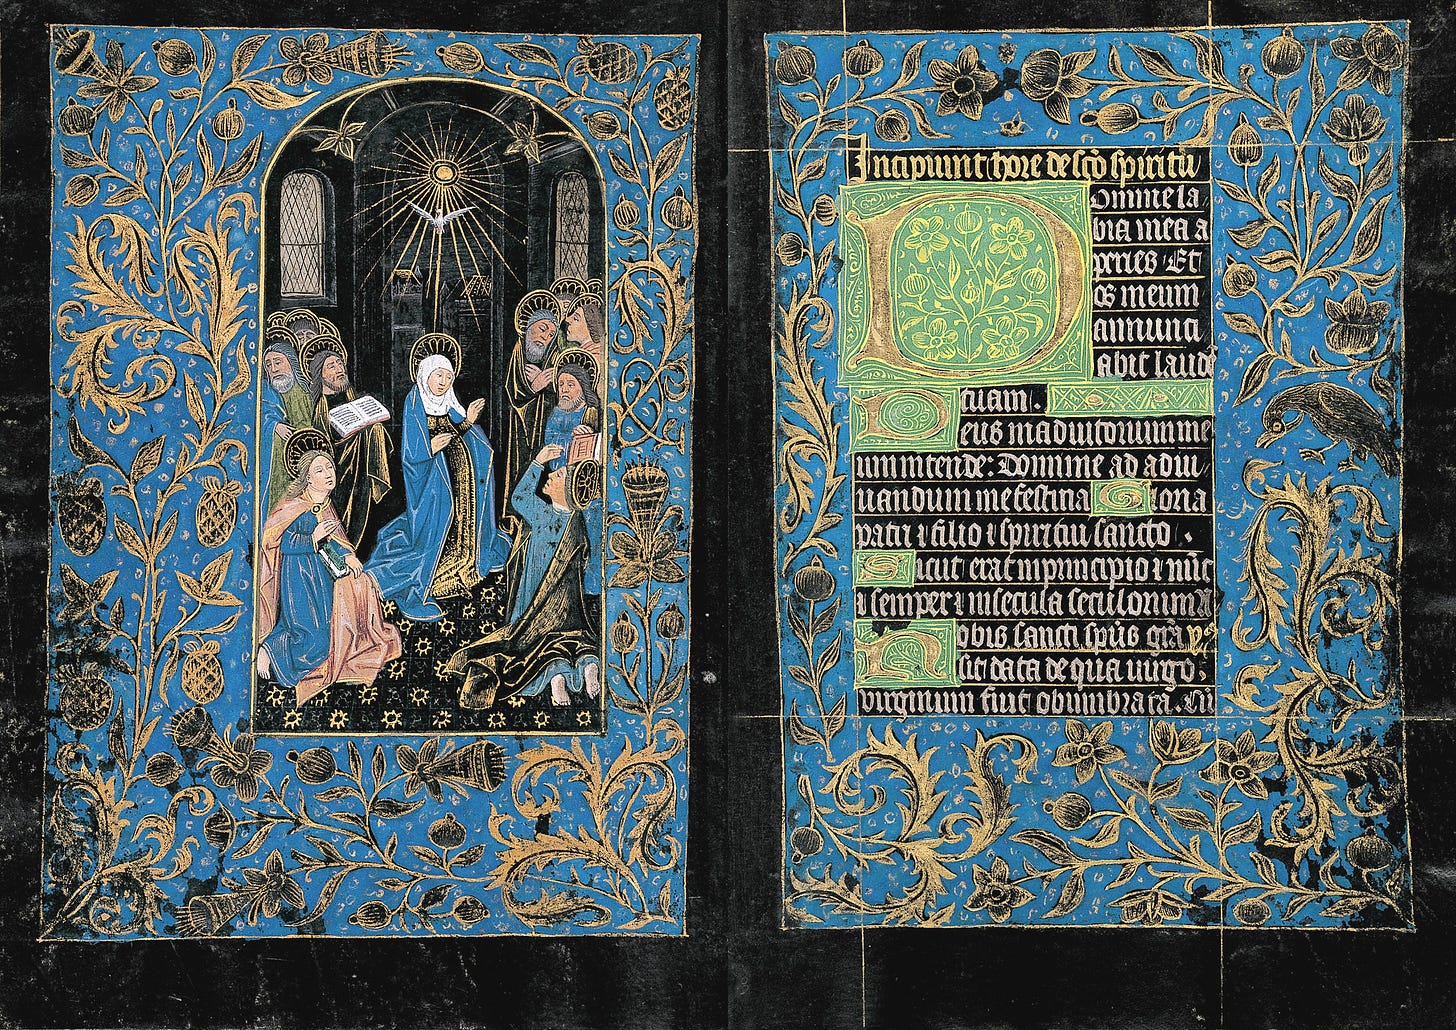 Incipiunt hore de sc̄o spiritu
Domine la
bia mea a
peries · Et
os meum
annunti
abit laudē
tuam .
Deus in adiutorium me
um intende : Domine ad adiu
uandum me festina Gloria
patri ⁊ filio ⁊ spiritui sancto .
Sicut erat in principio ⁊ nūc
⁊ semper ⁊ in secula seculorum a
Nobis sancti sp̄us grā
sit data de qua uirgo .
virginum fuit obumbrata . Cū